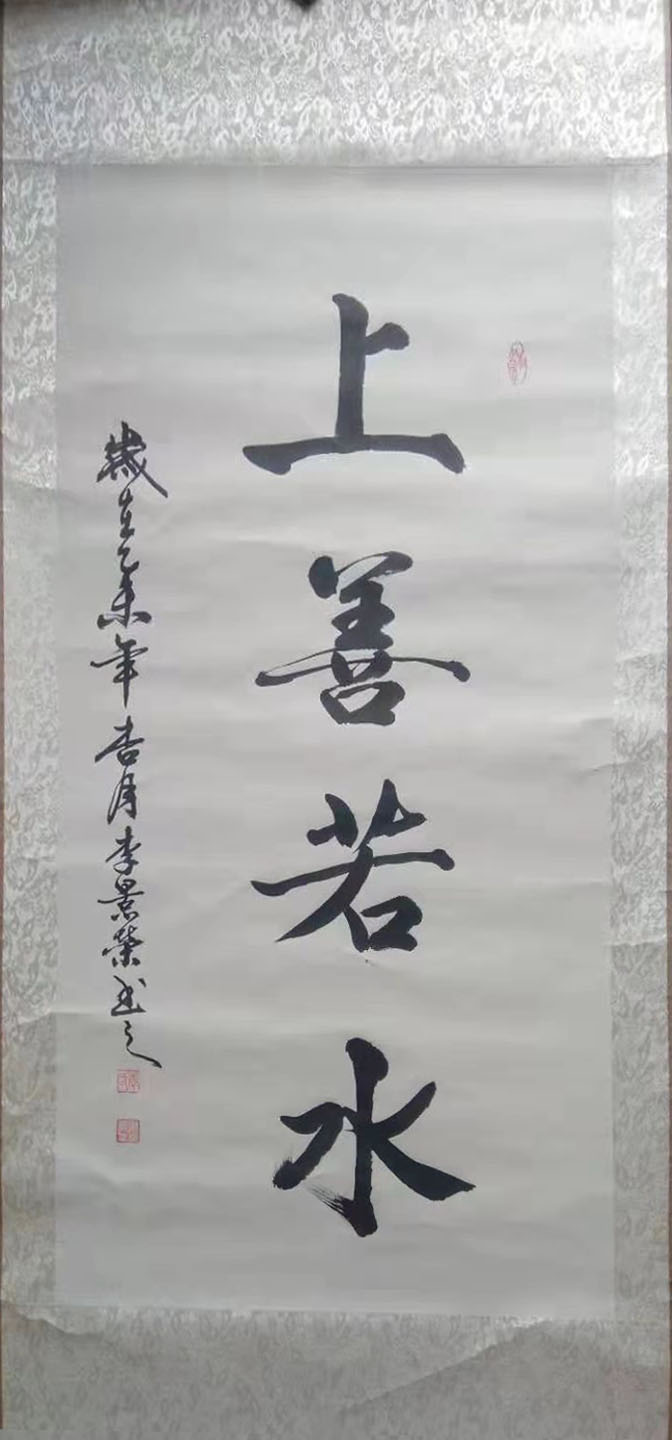 上善若水
歲在乙未年杏月李景榮书之